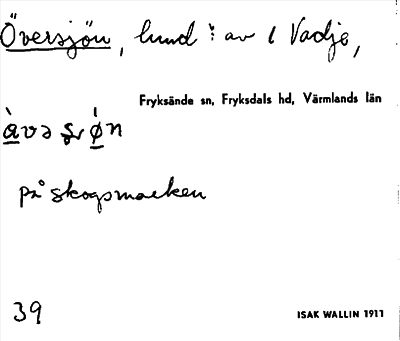 Översjön, lund : av 1 Vadje,
Fryksände sn, Fryksdals hd, Värmlands län
på skogsmarken
39
ISAK WALLIN 1911